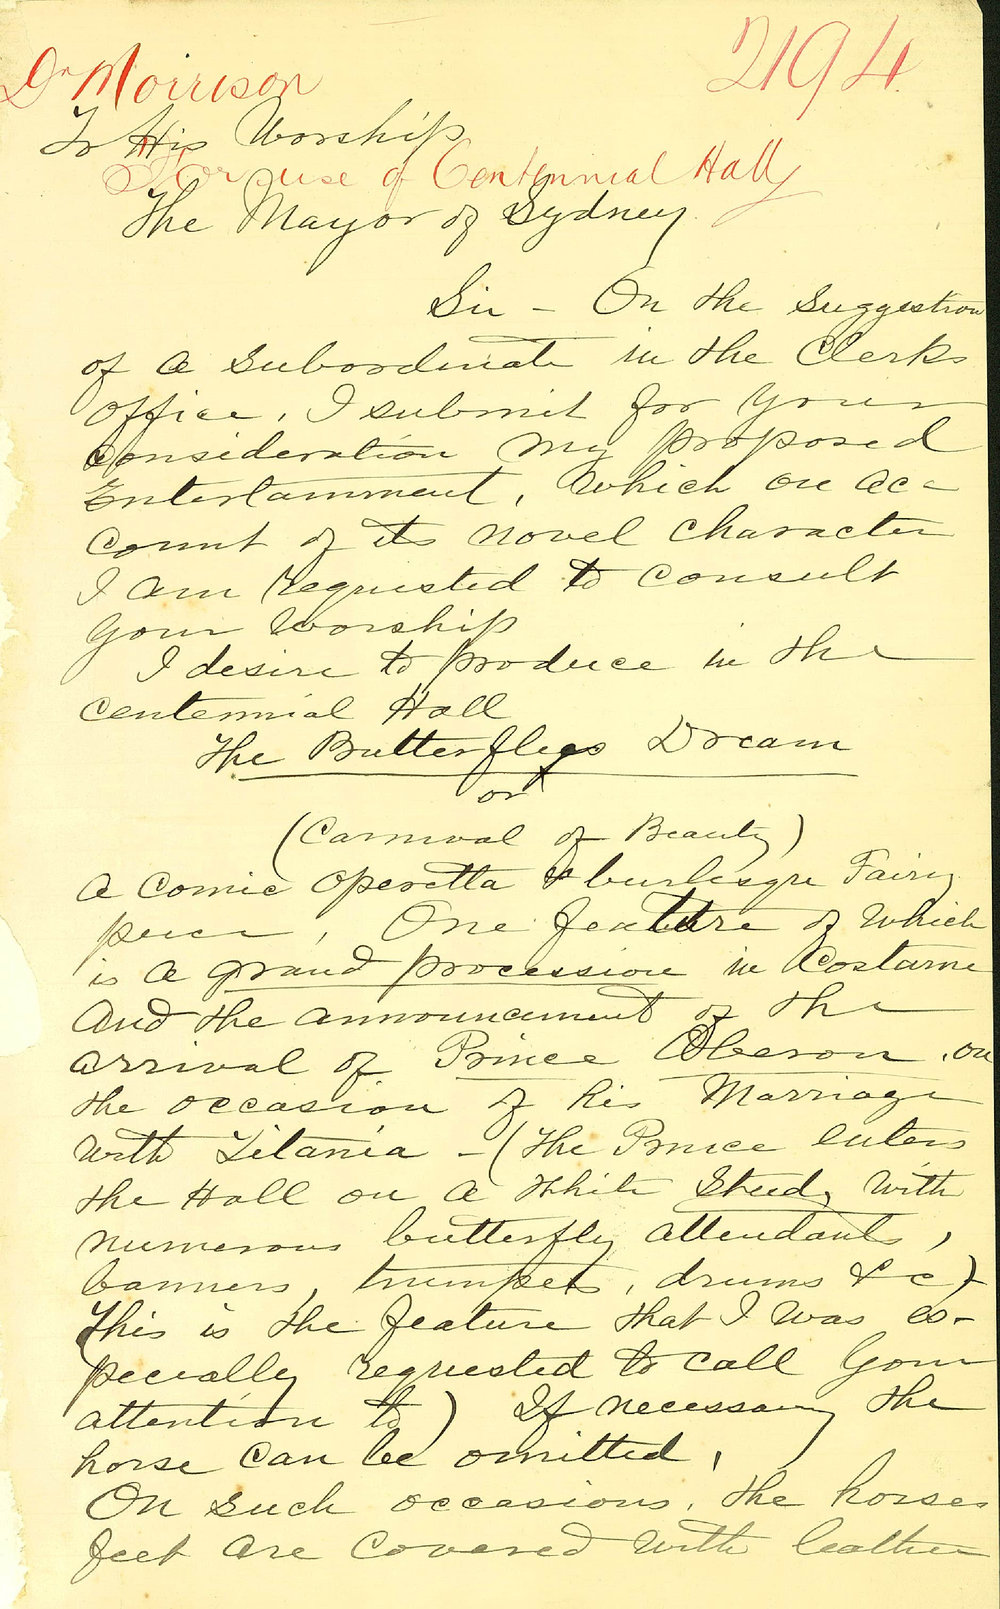 Dr Morrison
2194
To His Worship
For use of Centennial Hall
The Mayor of Sydney
Sir - On the suggestion
of a subordinate in the Clerks
office, I submit for your
consideration my proposed
Entertainment, which on ac=
count of its novel character
I am requested to consult
your worship
I desire to produce in the
Centennial Hall
The Butterflys Dream
or
(Carnival of Beauty)
A comic operetta & burlesque Fairy
piece, One feature of which
is a grand procession in Costume
And the announcement of the
arrival of Prince Oberon, on
the occasion of his Marriage
with Titania - (The Prince enters
the Hall on a White Steed, with
numerous butterfly attendants,
banners, trumpets, drums &c)
(This is the feature that I was es-
pecially requested to call your
attention to) If necessary the
horse can be omitted,
On such occasions, the horses
feet are covered with leather